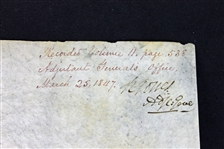 Recorded Volume 11. page 538
Adjutant Generals Office
March 25, 1847.